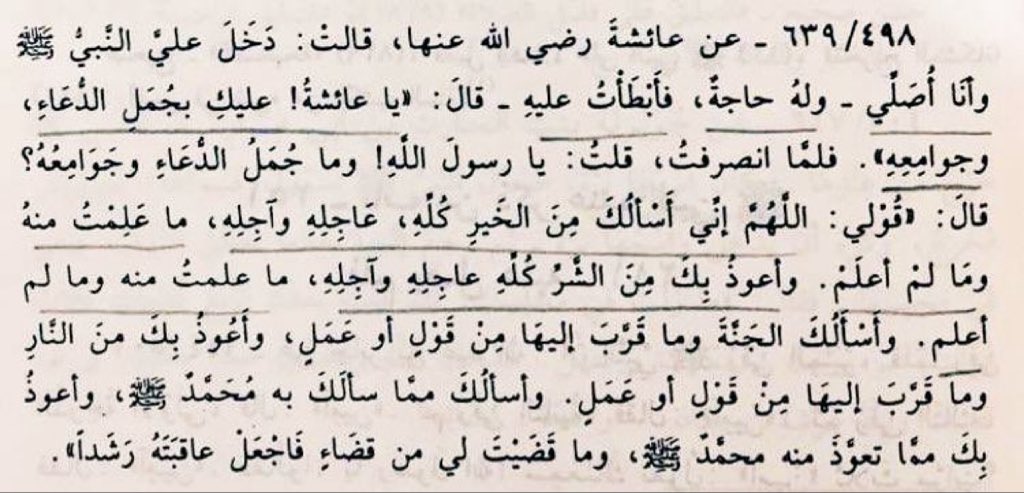 ٦٣٩/٤٩٨ ـ عن عائشةَ رضي الله عنها، قالتْ: دَخَلَ عليَّ النَّبيُّ ﷺ
وأنَا أُصَلِّي ـ ولهُ حاجةٌ، فأَبْطَأْتُ عليهِ ـ قالَ: «يا عائشةُ! عليكِ بجُمَلِ الدُّعَاءِ،
وجوامِعِهِ». فلمَّا انصرفتُ، قلتُ: يا رسولَ اللَّهِ! وما جُمَلُ الدُّعَاءِ وجَوَامِعُهُ؟
قالَ: «قُوْلي: اللَّهُمَّ إنِّي أَسْألُكَ مِنَ الخَيرِ كُلِّهِ، عَاجِلِهِ وآجِلِهِ، ما عَلِمْتُ منهُ
ومَا لمْ أعلَمْ. وأعوذُ بِكَ مِنَ الشَّرِّ كُلِّهِ عاجِلِهِ وآجِلِهِ، ما علمتُ منه وما لم
أعلم. وأَسْأَلُكَ الجَنَّةَ وما قَرَّبَ إليهَا مِنْ قَوْلٍ أو عَمَلٍ، وأَعُوذُ بِكَ منَ النَّارِ
وما قَرَّبَ إليهَا مِنْ قَوْلٍ أو عَمَلٍ. وأسألُكَ ممَّا سألَكَ به مُحَمَّدٌ ﷺ، وأعوذُ
بِكَ ممَّا تعوَّذَ منه محمَّدٌ ﷺ، وما قَضَيْتَ لي من قضَاءٍ فَاجْعَلْ عاقبَتَهُ رَشَداً».